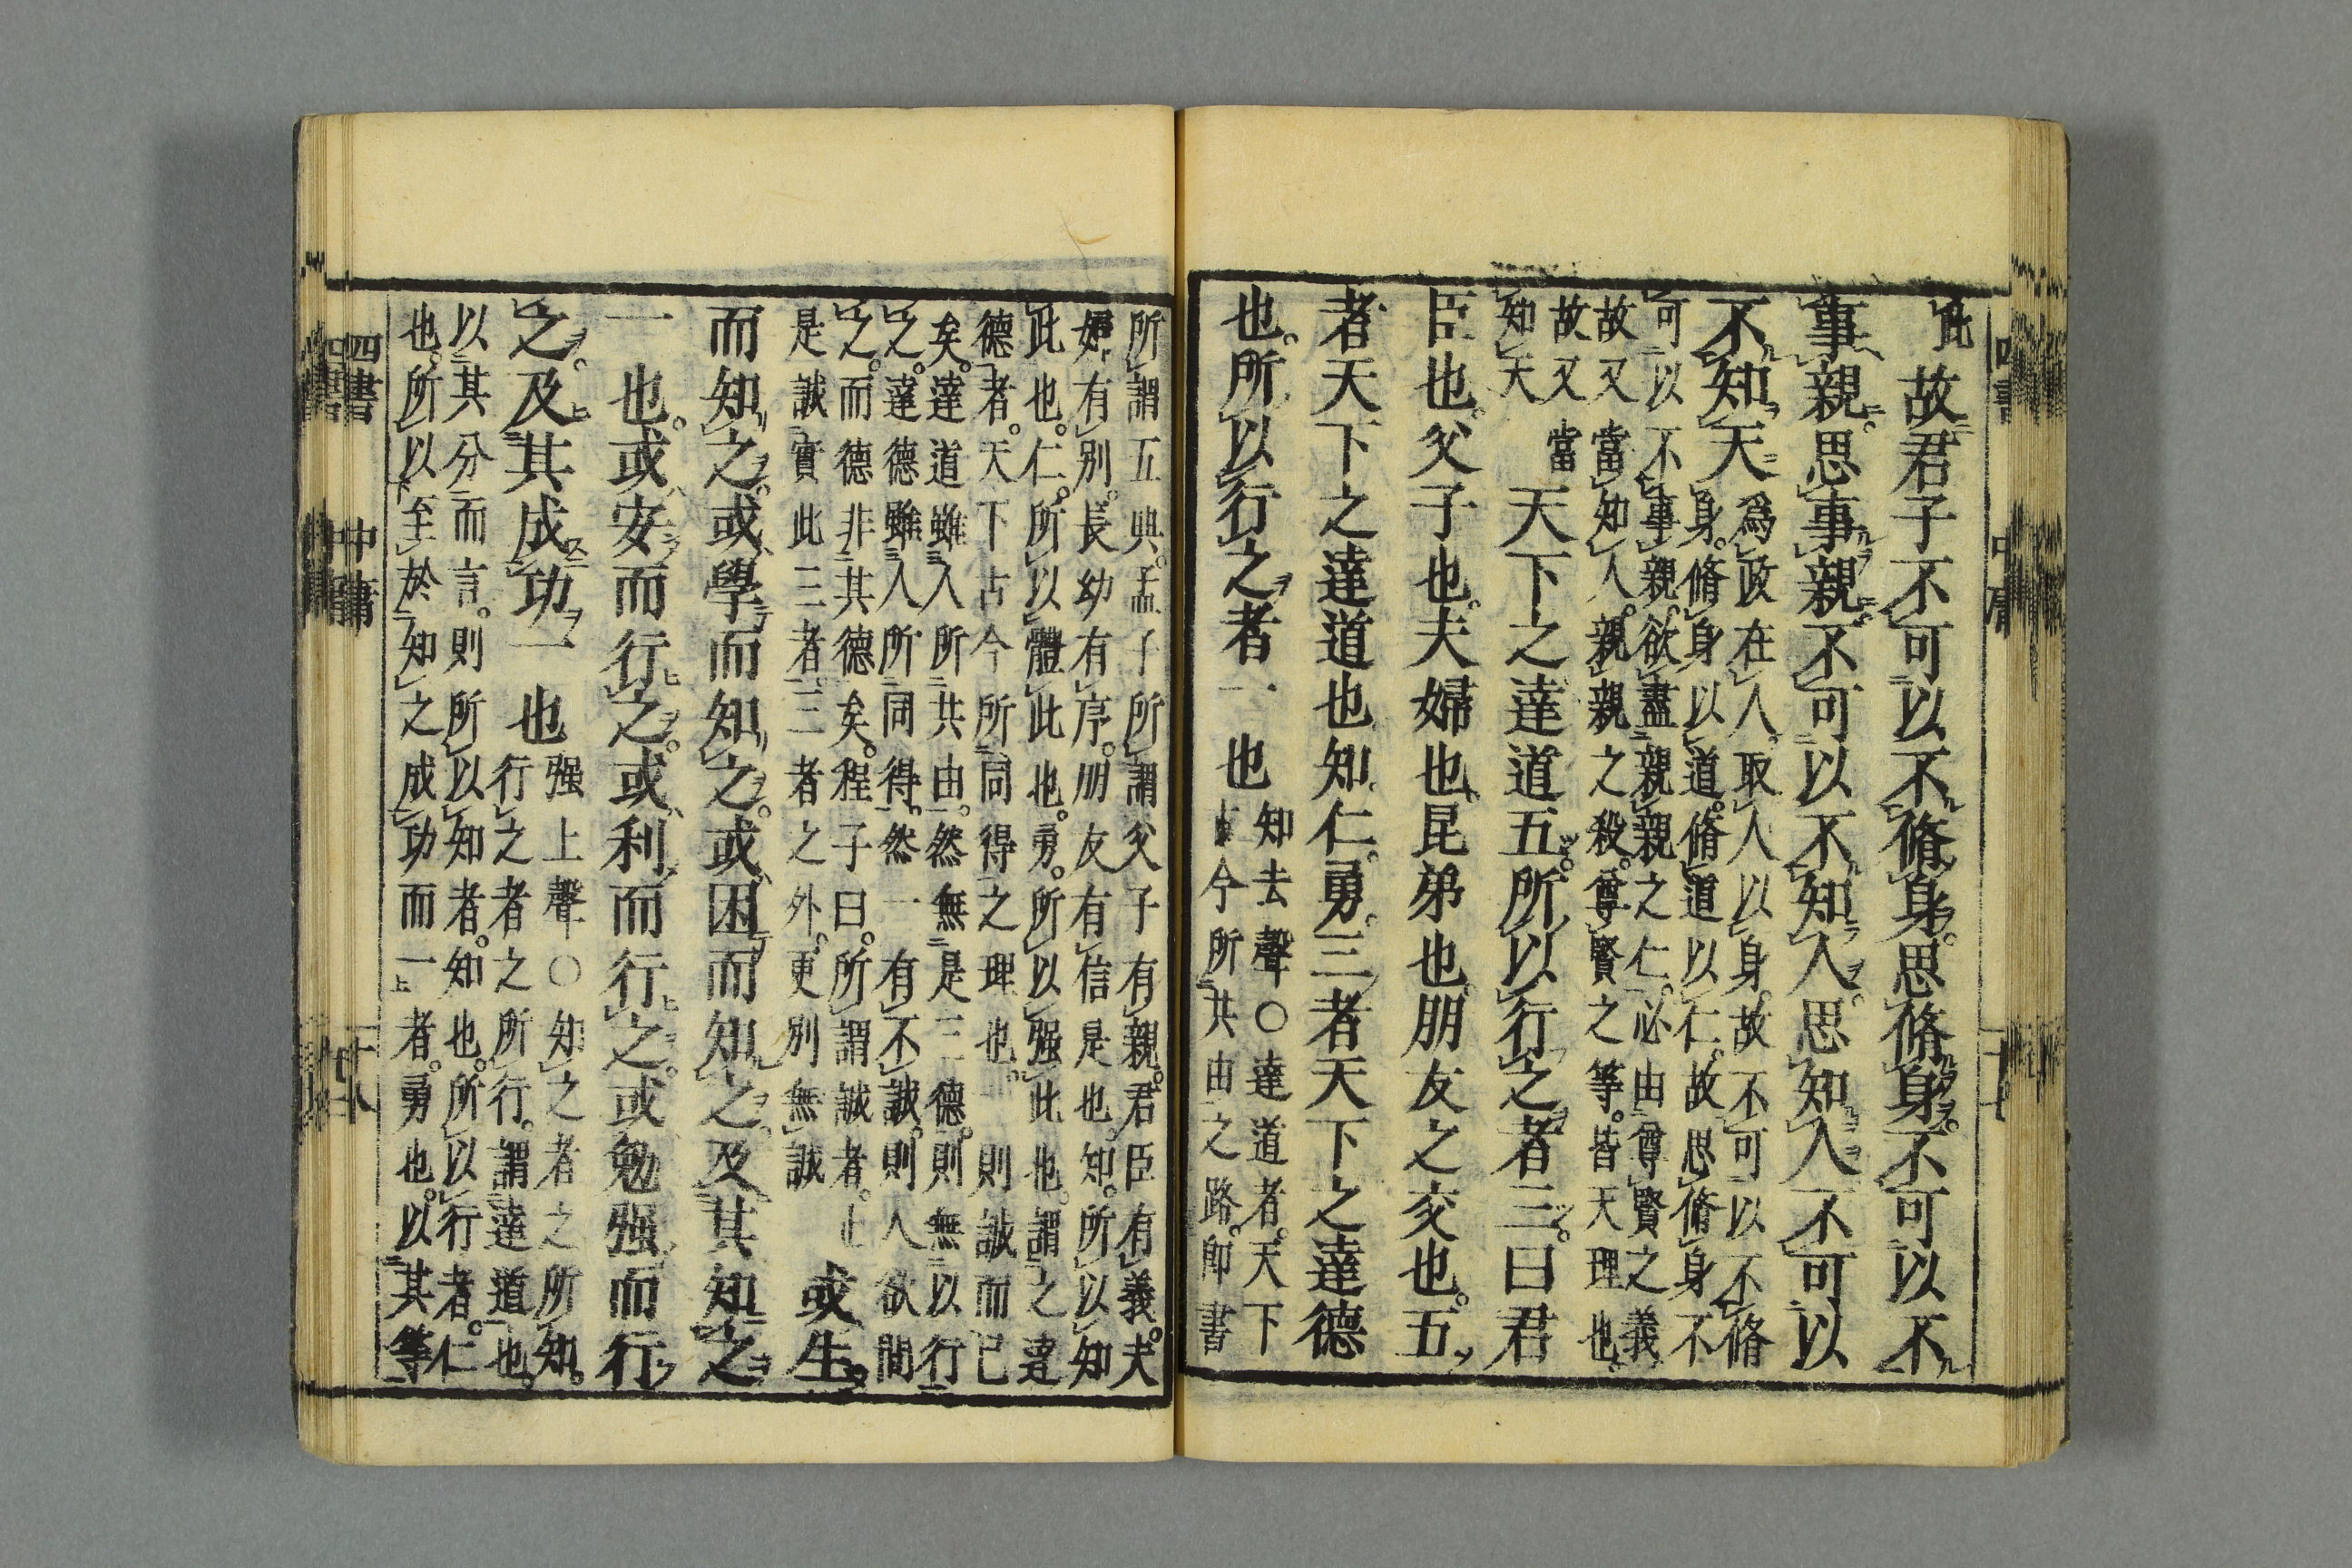 此故君子不可以不脩身思脩身不可以不
事親思事親不可以不知人思知人不可以
不知天
爲政在人取人以身故不可以不脩
身脩身以道脩道以仁故思脩身不
可以不事親欲盡親親之仁必由尊賢之義
故又當知人親親之殺尊賢之等皆天理也
故又當
知天
天下之達道五所以行之者三曰君
臣也父子也夫婦也昆弟也朋友之交也五
者天下之達道也知仁勇三者天下之達德
也所以行之者一也
知去聲○達道者天下
古今所共由之路卽書
所謂五典孟子所謂父子有親君臣有義夫
婦有別長幼有序朋友有信是也知所以知
此也仁所以體此也勇所以强此也謂之達
德者天下古今所同得之理也一則誠而已
矣達道雖人所共由然無是三德則無以行
之達德雖人所同得然一有不誠則人欲間
之而德非其德矣程子曰所謂誠者止
是誠實此三者三者之外更別無誠
或生
而知之或學而知之或困而知之及其知之
一也或安而行之或利而行之或勉强而行
之及其成功一也
强上聲○知之者之所知
行之者之所行謂達道也
以其分而言則所以知者知也所以行者仁
也所以至於知之成功而一者勇也以其等
四書 中庸 十八